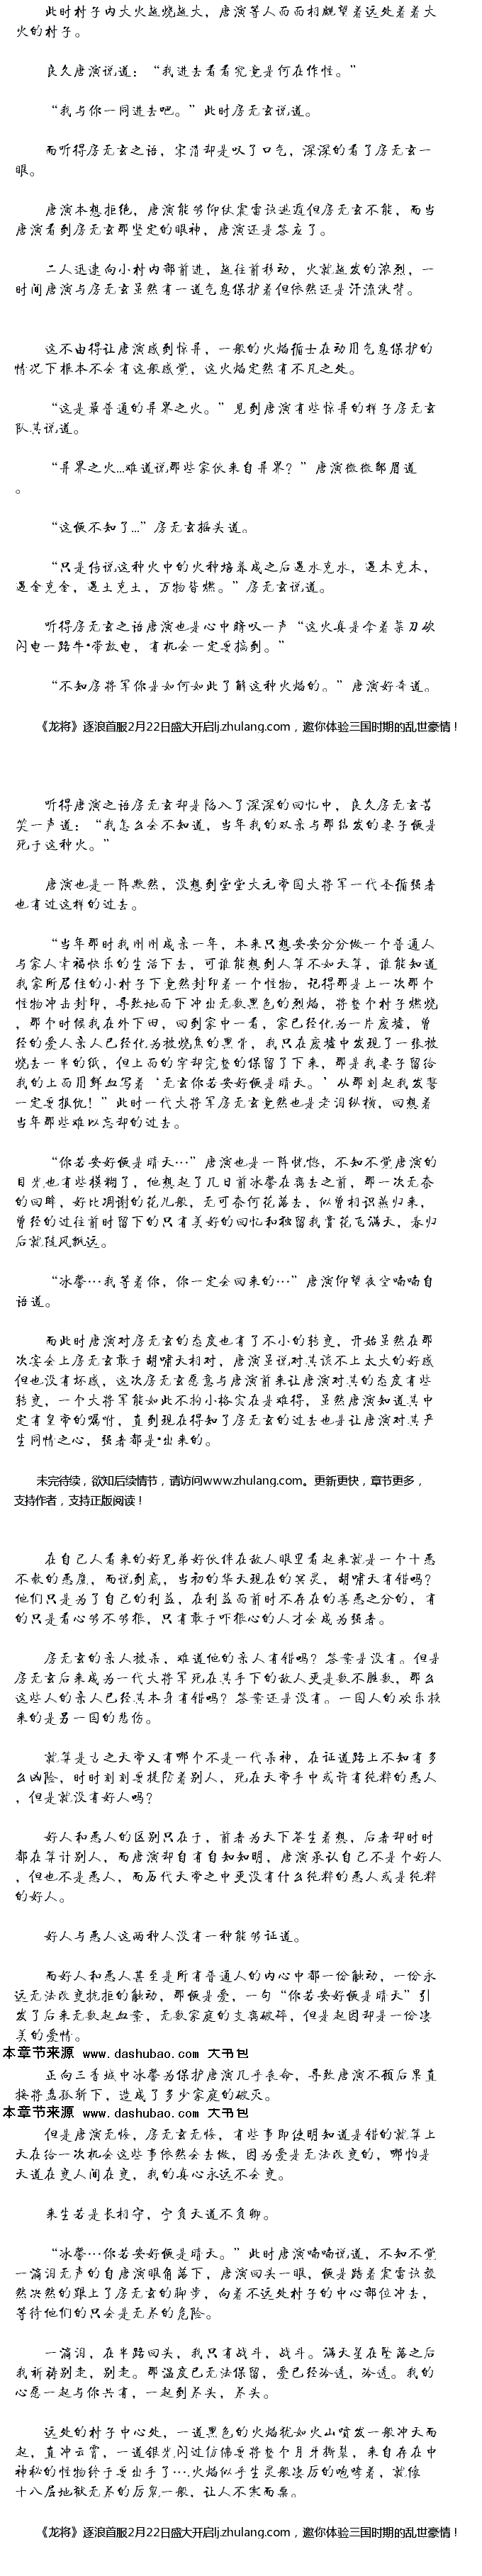 此时村子内大火越烧越大，唐演等人面面相觑望着远处着着大
火的村子。
良久唐演说道：“我进去看看究竟是何在作怪。”
“我与你一同进去吧。”此时房无玄说道。
而听得房无玄之语，宋清却是叹了口气，深深的看了房无玄一
眼。
唐演本想拒绝，唐演能够仰仗震雷诀逃遁但房无玄不能，而当
唐演看到房无玄那坚定的眼神，唐演还是答应了。
二人迅速向小村内部前进，越往前移动，火就越发的浓烈，一
时间唐演与房无玄虽然有一道气息保护着但依然还是汗流浃背。
这不由得让唐演感到惊异，一般的火焰循士在动用气息保护的
情况下根本不会有这般感觉，这火焰定然有不凡之处。
“这是最普通的异界之火。”见到唐演有些惊异的样子房无玄
队其说道。
“异界之火...难道说那些家伙来自异界？”唐演微微邹眉道
。
“这便不知了...”房无玄摇头道。
“只是传说这种火中的火种培养成之后遇水克水，遇木克木，
遇金克金，遇土克土，万物皆燃。”房无玄说道。
听得房无玄之语唐演也是心中暗叹一声“这火真是拿着菜刀砍
闪电一路牛*带放电，有机会一定要搞到。”
“不知房将军你是如何如此了解这种火焰的。”唐演好奇道。
《龙将》逐浪首服2月22日盛大开启lj.zhulang.com，邀你体验三国时期的乱世豪情！
听得唐演之语房无玄却是陷入了深深的回忆中，良久房无玄苦
笑一声道：“我怎么会不知道，当年我的双亲与那结发的妻子便是
死于这种火。”
唐演也是一阵默然，没想到堂堂大元帝国大将军一代圣循强者
也有过这样的过去。
“当年那时我刚刚成亲一年，本来只想安安分分做一个普通人
与家人幸福快乐的生活下去，可谁能想到人算不如天算，谁能知道
我家所居住的小村子下竟然封印着一个怪物，记得那是上一次那个
怪物冲击封印，导致地面下冲出无数黑色的烈焰，将整个村子燃烧
，那个时候我在外下田，回到家中一看，家已经化为一片废墟，曾
经的爱人亲人已经化为被烧焦的黑骨，我只在废墟中发现了一张被
烧去一半的纸，但上面的字却完整的保留了下来，那是我妻子留给
我的上面用鲜血写着‘无玄你若安好便是晴天。’从那刻起我发誓
一定要报仇！”此时一代大将军房无玄竟然也是老泪纵横，回想着
当年那些难以忘却的过去。
“你若安好便是晴天…”唐演也是一阵恍惚，不知不觉唐演的
目光也有些模糊了，他想起了几日前冰馨在离去之前，那一次无奈
的回眸，好比凋谢的花儿般，无可奈何花落去，似曾相识燕归来，
曾经的过往前时留下的只有美好的回忆和独留我赏花飞满天，春归
后就随风飘远。
“冰馨…我等着你，你一定会回来的…”唐演仰望夜空喃喃自
语道。
而此时唐演对房无玄的态度也有了不小的转变，开始虽然在那
次宴会上房无玄敢于胡啸天相对，唐演虽说对其谈不上太大的好感
但也没有坏感，这次房无玄愿意与唐演前来让唐演对其的态度有些
转变，一个大将军能如此不拘小格实在是难得，虽然唐演知道其中
定有皇帝的嘱咐，直到现在得知了房无玄的过去也是让唐演对其产
生同情之心，强者都是*出来的。
未完待续，欲知后续情节，请访问www.zhulang.com。更新更快，章节更多，
支持作者，支持正版阅读！
在自己人看来的好兄弟好伙伴在敌人眼里看起来就是一个十恶
不赦的恶魔，而说到底，当初的华天现在的冥灵，胡啸天有错吗？
他们只是为了自己的利益，在利益面前时不存在的善恶之分的，有
的只是看心够不够狠，只有敢于吓狠心的人才会成为强者。
房无玄的亲人被杀，难道他的亲人有错吗？答案是没有。但是
房无玄后来成为一代大将军死在其手下的敌人更是数不胜数，那么
这些人的亲人已经其本身有错吗？答案还是没有。一国人的欢乐换
来的是另一国的悲伤。
就算是古之天帝又有哪个不是一代杀神，在证道路上不知有多
么凶险，时时刻刻要提防着别人，死在天帝手中或许有纯粹的恶人
，但是就没有好人吗？
好人和恶人的区别只在于，前者为天下苍生着想，后者却时时
都在算计别人，而唐演却自有自知知明，唐演承认自己不是个好人
，但也不是恶人，而历代天帝之中更没有什么纯粹的恶人或是纯粹
的好人。
好人与恶人这两种人没有一种能够证道。
而好人和恶人甚至是所有普通人的内心中都一份触动，一份永
远无法改变抗拒的触动，那便是爱，一句“你若安好便是晴天”引
发了后来无数起血案，无数家庭的支离破碎，但是起因却是一份凄
美的爱情。
本章节来源 www.dashubao.com 大书包
正向三香城中冰馨为保护唐演几乎丧命，导致唐演不顾后果直
接将孟弧斩下，造成了多少家庭的破灭。
本章节来源 www.dashubao.com 大书包
但是唐演无悔，房无玄无悔，有些事即使明知道是错的就算上
天在给一次机会这些事依然会去做，因为爱是无法改变的，哪怕是
天道在变人间在变，我的真心永远不会变。
来生若是长相守，宁负天道不负卿。
“冰馨…你若安好便是晴天。”此时唐演喃喃说道，不知不觉
一滴泪无声的自唐演眼角落下，唐演回头一眼，便是踏着震雷诀毅
然决然的跟上了房无玄的脚步，向着不远处村子的中心部位冲去，
等待他们的只会是无尽的危险。
一滴泪，在半路回头，我只有战斗，战斗。满天星在坠落之后
我祈祷别走，别走。那温度已无法保留，爱已经冷透，冷透。我的
心愿一起与你共有，一起到尽头，尽头。
远处的村子中心处，一道黑色的火焰犹如火山喷发一般冲天而
起，直冲云霄，一道银光闪过仿佛要将整个月牙撕裂，来自存在中
神秘的怪物终于要出手了….火焰似乎生灵般凄厉的咆哮着，就像
十八层地狱无尽的厉鬼一般，让人不寒而栗。
《龙将》逐浪首服2月22日盛大开启lj.zhulang.com，邀你体验三国时期的乱世豪情！